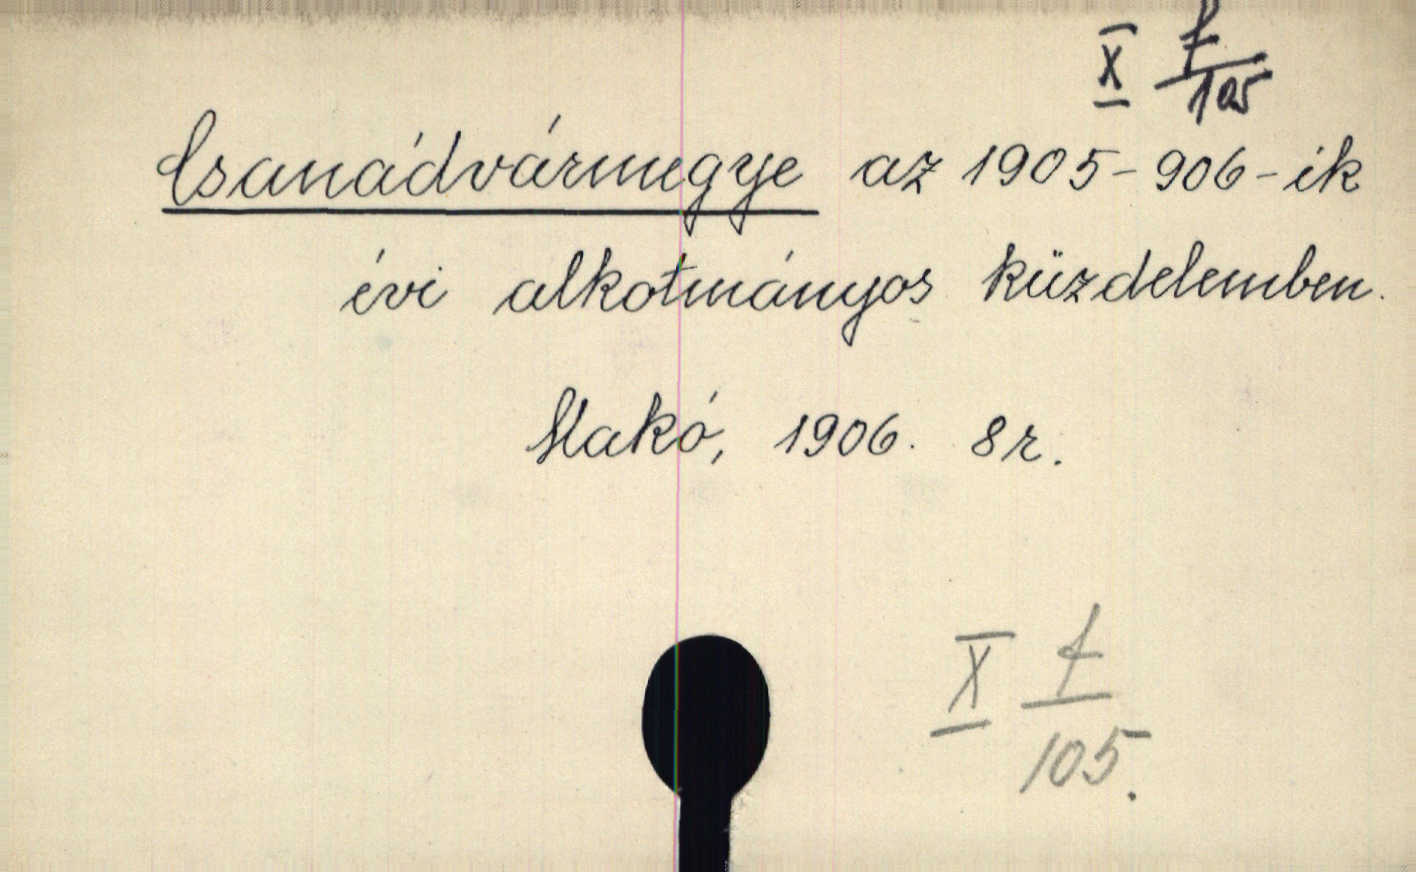 X f/105
Csanádvármegye az 1905-906-ik
évi alkotmányos küzdelemben.
Makó, 1906. 8r.
X f/105.